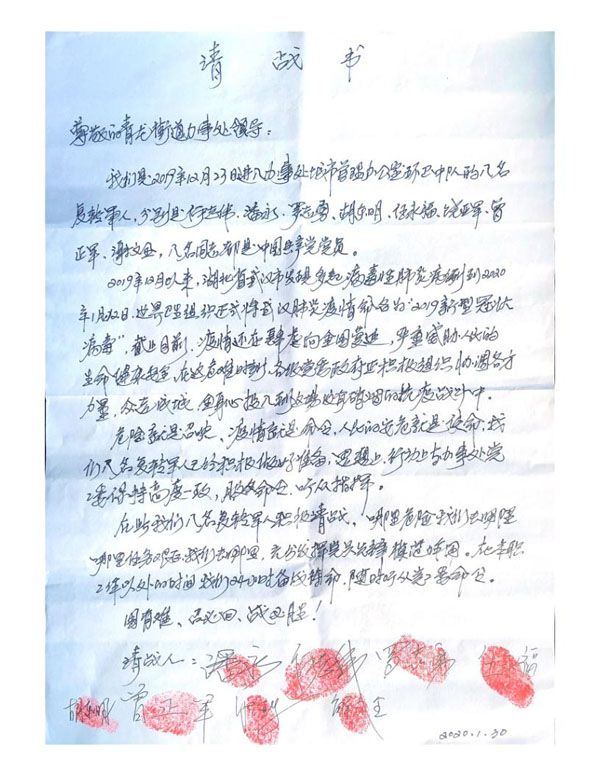 请战书
尊敬的青龙街道办事处领导：
我们是2019年12月23日进入办事处城市管理办公室环卫中队的八名
复转军人，分别是何  伟、潘永、罗志勇、胡东明、任永福、饶正军、曾
正军、谢文全，八名同志都是中国共产党党员。
2019年12月以来，湖北省武汉市发现多起病毒性肺炎病例到2020
年1月  日，世界卫生组织正式将武汉肺炎疫情命名为“2019新型冠状
病毒”，截止目前，疫情还在肆虐向全国蔓延，严重威胁人民的
生命健康安全，在这危难时刻，各级党委政府正积极组织协调各方
力量，众志成城，全身心投入到这场没有硝烟的抗疫战斗中。
危险就是召唤、疫情就是命令，人民的安危就是使命，我
们八名复转军人已经积极做好准备，思想上、行动上与办事处党
工委保持高度一致，服从命令、听从指挥。
在此我们八名复转军人积极请战，哪里危险我们去哪里
哪里任务艰巨我们去哪里，充分发挥党员先锋模范作用。在本职
工作以外的时间我们24小时备战待命，随时听从党工委命令。
国有难、召必回、战必胜！
请战人：潘永  罗志勇 任永福
胡东明 曾正军  谢文全
2020.1.30